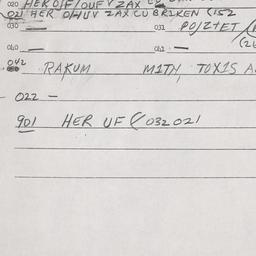 020 HER O/F/OUF V ZAX
021 HER O/HUV ZAX CU BRIKEN (152
030 — 031 PO/Z+ET/
(2
040 — 041 —
042 RAKUM MITH TOXIS A
022 —
901 HER UF ( 032 021